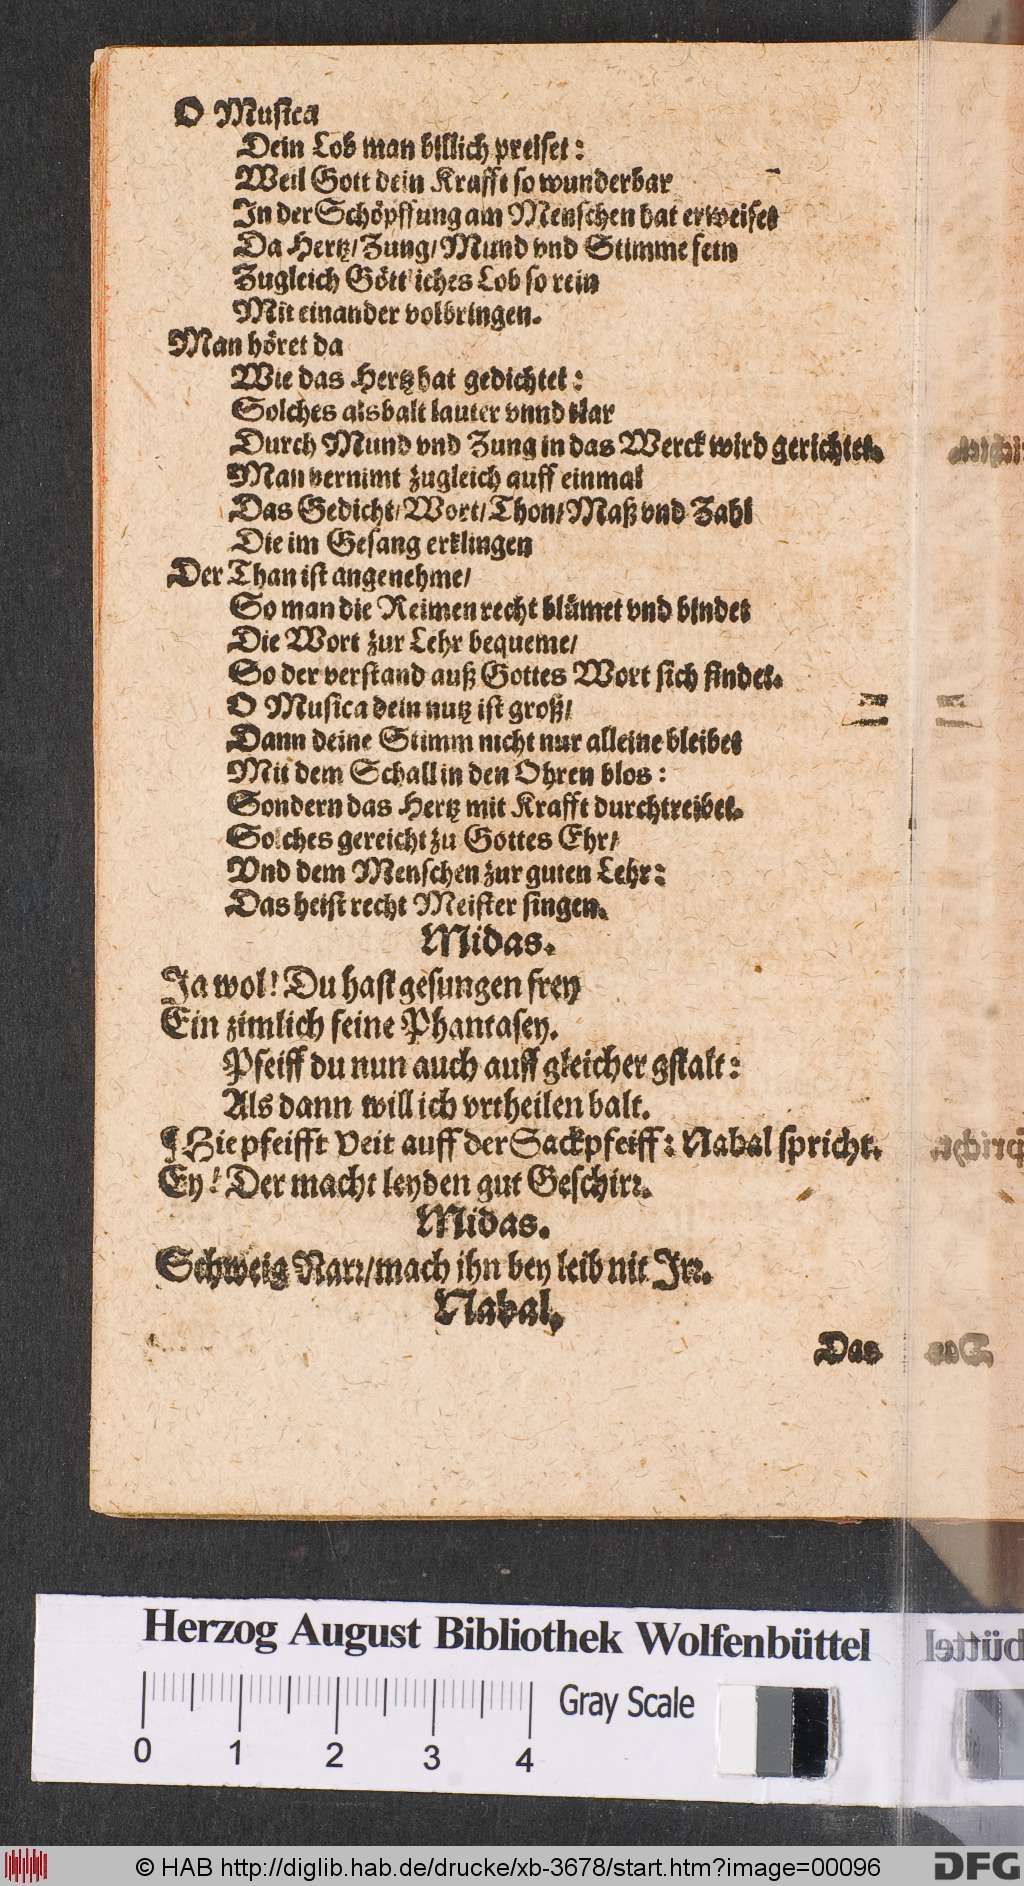 O Musica
Dein Lob man billich preiset:
Weil Gott dein Krafft so wunderbar
In der Schöpffung am Menschen hat erweiset
Da Hertz/ Zung/ Mund vnd Stimme fein
Zugleich Göttliches Lob so rein
Mit einander volbringen.
Man höret da
Wie das Hertz hat gedichtet:
Solches alsbalt lauter vnnd klar
Durch Mund vnd Zung in das Werck wird gerichtet.
Man vernimt zugleich auff einmal
Das Gedicht/ Wort/ Thon/ Maß vnd Zahl
Die im Gesang erklingen
Der Than ist angenehme/
So man die Reimen recht blümet vnd bindet
Die Wort zur Lehr bequeme/
So der verstand auß Gottes Wort sich findet.
O Musica dein nutz ist groß/
Dann deine Stimm nicht nur alleine bleibet
Mit dem Schall in den Ohren blos:
Sondern das Hertz mit Krafft durchtreibet.
Solches gereicht zu Gottes Ehr/
Vnd dem Menschen zur guten Lehr:
Das heist recht Meister singen.
Midas.
Ja wol! Du hast gesungen frey
Ein zimlich feine Phantasey.
Pfeiff du nun auch auff gleicher gstalt:
Als dann will ich vrtheilen balt.
¶ Hie pfeifft Veit auff der Sackpfeiff: Nabal spricht.
Ey! Der macht leyden gut Geschirr.
Midas.
Schweig Narr/ mach ihn bey leib nit Irr.
Nabal.
Das
Herzog August Bibliothek Wolfenbüttel
Gray Scale
0 1 2 3 4
© HAB http://diglib.hab.de/drucke/xb-3678/start.htm?image=00096
DFG